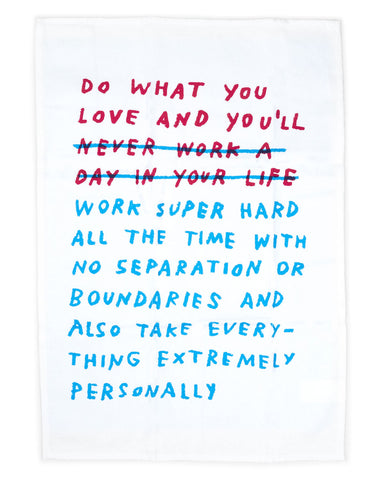 DO WHAT YOU
LOVE AND YOU'LL
NEVER WORK A
DAY IN YOUR LIFE
WORK SUPER HARD
ALL THE TIME WITH
NO SEPARATION OR
BOUNDARIES AND
ALSO TAKE EVERY-
THING EXTREMELY
PERSONALLY